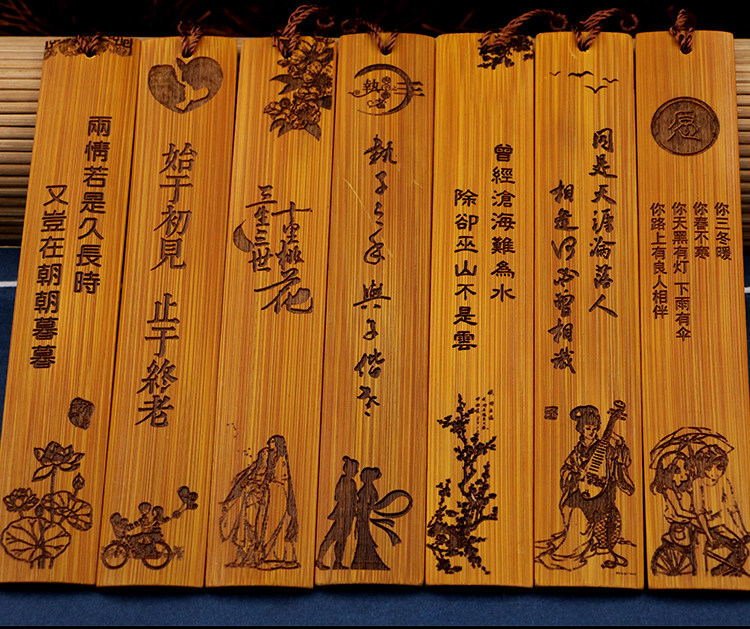 兩情若是久長時
又豈在朝朝暮暮
始于初見
止于終老
三生三世
十里桃花
執子之手 與子偕老
曾經滄海難為水
除卻巫山不是雲
同是天涯淪落人
相逢何必曾相識
愿
你三冬暖
你春不寒
你天黑有灯 下雨有伞
你路上有良人相伴